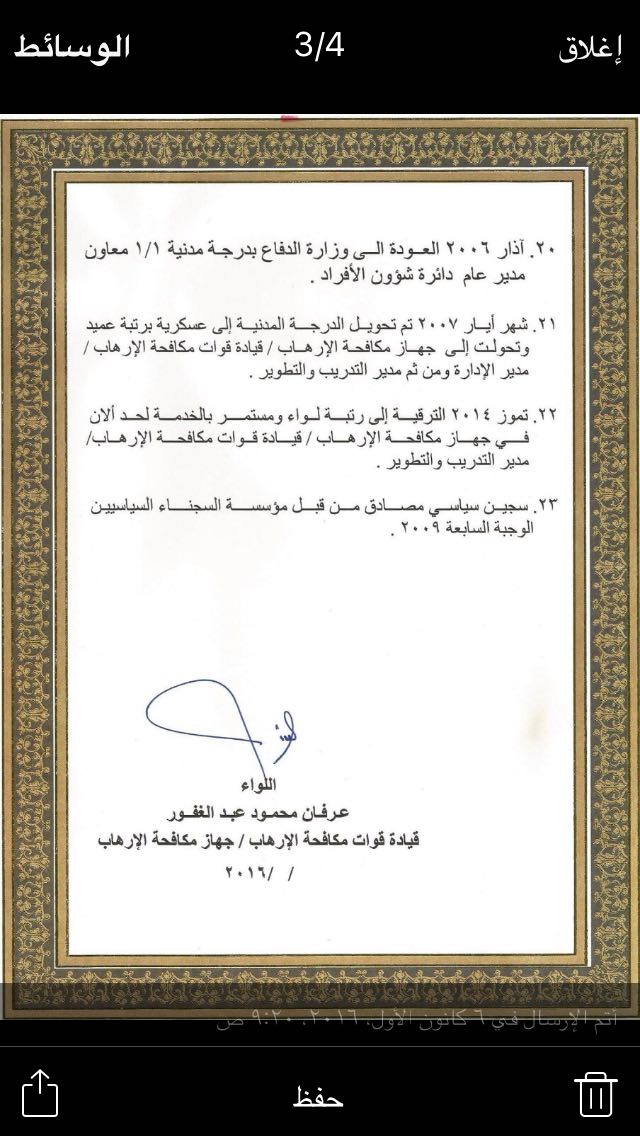 إغلاق
3/4
الوسائط
٢٠. آذار ٢٠٠٦ العودة الى وزارة الدفاع بدرجة مدنية ١/١ معاون
مدير عام دائرة شؤون الأفراد .
٢١. شهر أيار ٢٠٠٧ تم تحويل الدرجة المدنية إلى عسكرية برتبة عميد
وتحولت إلى جهاز مكافحة الإرهاب / قيادة قوات مكافحة الإرهاب /
مدير الإدارة ومن ثم مدير التدريب والتطوير .
٢٢. تموز ٢٠١٤ الترقية إلى رتبة لواء ومستمر بالخدمة لحد ألان
في جهاز مكافحة الإرهاب / قيادة قوات مكافحة الإرهاب/
مدير التدريب والتطوير .
٢٣. سجين سياسي مصادق من قبل مؤسسة السجناء السياسيين
الوجبة السابعة ٢٠٠٩ .
اللواء
عرفان محمود عبد الغفور
قيادة قوات مكافحة الإرهاب / جهاز مكافحة الإرهاب
/ /٢٠١٦
أتم الإرسال في ٦ كانون الأول، ٢٠١٦، ٩:٢٠ ص
حفظ